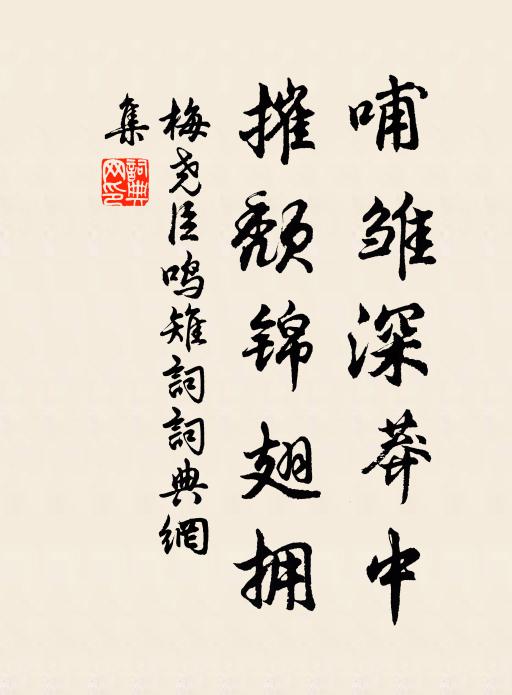 哺雏深莽中
摧颓锦翅拥
梅尧臣鸣雉词詞典網
集
詞典網印